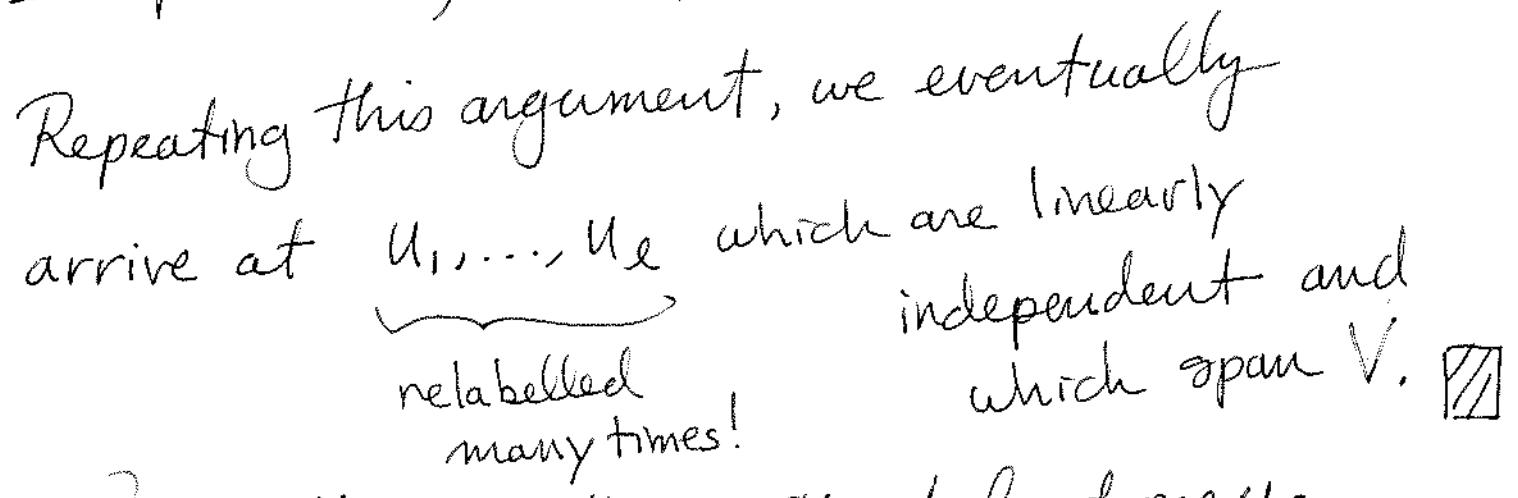 Repeating this argument, we eventually
arrive at u₁,..., u_ℓ which are linearly
independent and
which span V.
relabelled
many times!